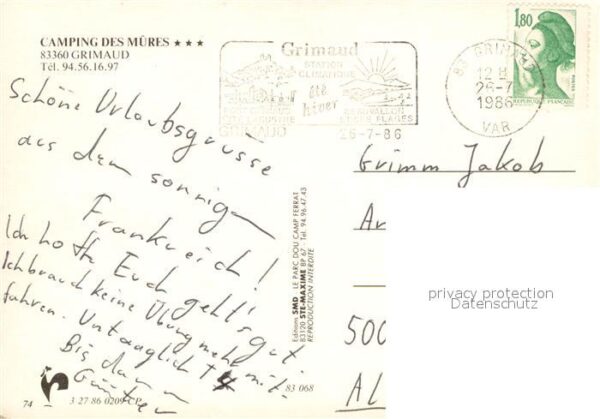 CAMPING DES MÛRES ★★★
83360 GRIMAUD
Tél. 94.56.16.97
Schöne Urlaubsgrüsse
aus dem sonnigen
Frankreich!
Ich hoffe Euch geht's gut
Ich brauch keine Übung mehr mit-
fahren. Untauglich T4
Bis dann
Günter
74
3 27 86 0209 CP
83 068
Editions SMD - LE PARC DOU CAMP FERRAT
83120 STE-MAXIME BP 67 - Tél. 94.96.47.43
REPRODUCTION INTERDITE
Grimaud
STATION
CLIMATIQUE
été
hiver
CITÉ LACUSTRE
GRIMAUD
SES PLAGES
26-7-86
83 GRIMAUD
12 H
26-7
1986
VAR
1,80
REPUBLIQUE FRANÇAISE
POSTES
Grimm Jakob
Ar
500
Al
privacy protection
Datenschutz